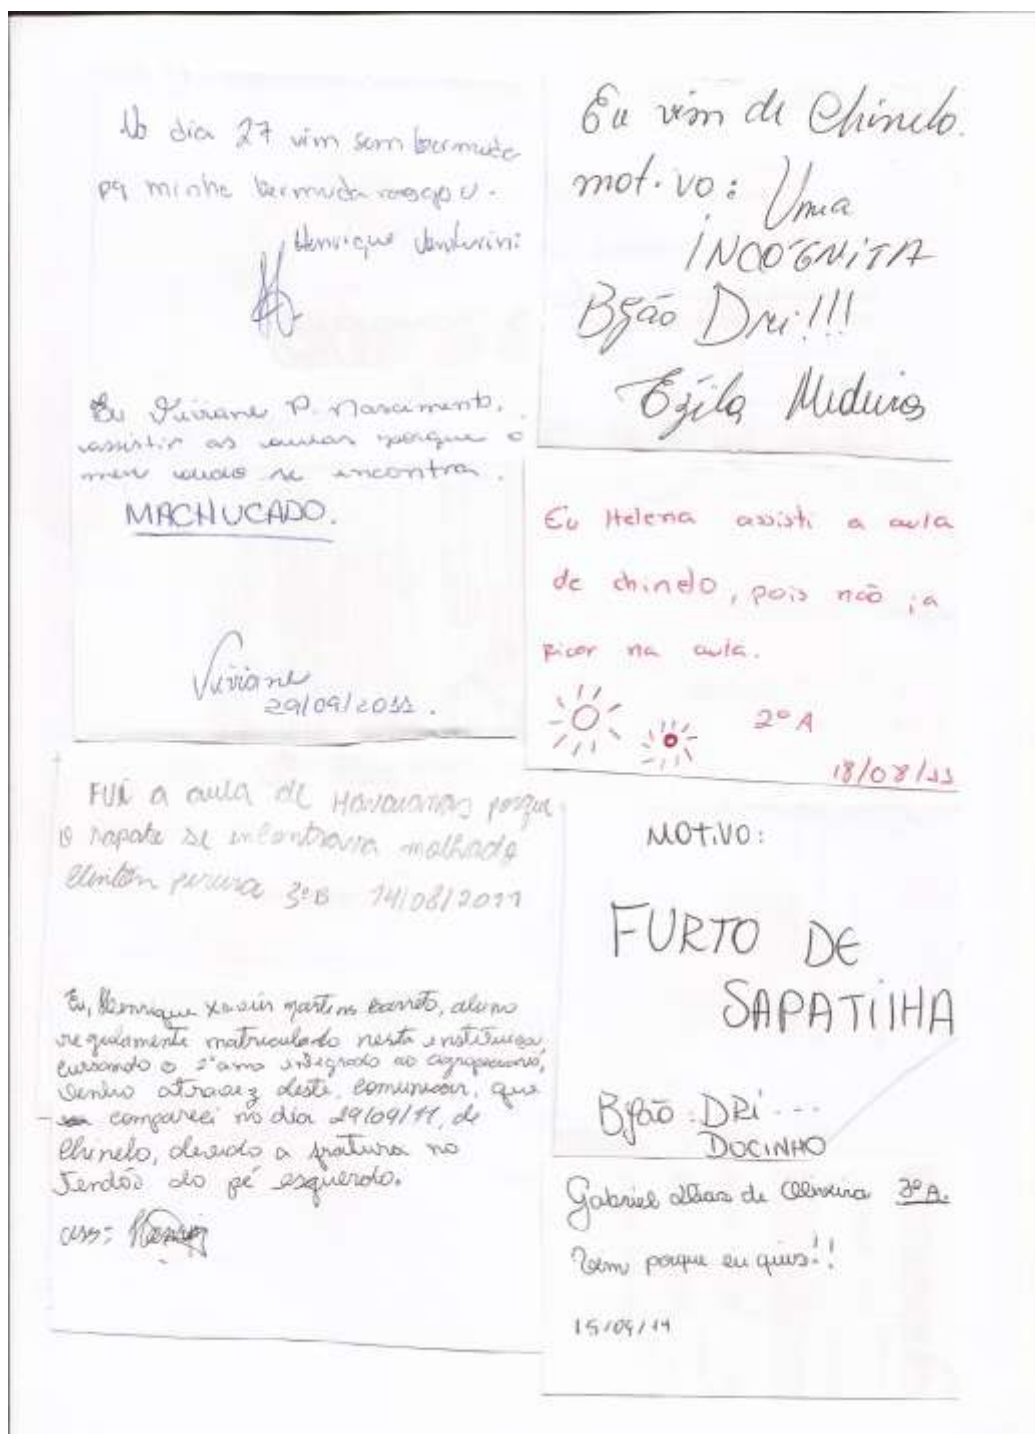 No dia 27 vim sem bermuda
pq minha bermuda rasgou.
Henrique Venturini
Eu Viviane P. Nascimento,
assistir as aulas porque o
meu dedo se encontra.
MACHUCADO.
Viviane
29/09/2011.
FUI a aula de Havaianas porque
o sapato se encontrava molhado
Clinton pereira 3ºB 14/08/2011
Eu, Henrique xavier martins barreto, aluno
regulamente matriculado nesta instituição,
cursando o 2º ano integrado ao agropecuária,
venho atravez deste, comunicar, que
compareci no dia 29/09/11, de
chinelo, devido a fratura no
tendão do pé esquerdo.
ass:
Eu vim de Chinelo.
motivo: Uma
INCÓGNITA
Bjão Dri!!!
Medeiros
Eu Helena assisti a aula
de chinelo, pois não ia
ficar na aula.
2º A
18/08/11
MOTIVO:
FURTO DE
SAPATILHA
Bjão DRI...
DOCINHO
Gabriel Dias de Oliveira 3º A.
Vim porque eu quis!!